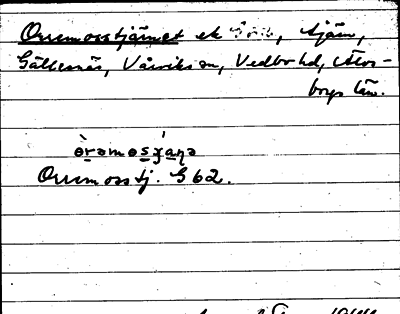 Orremosstjärnet ek, tjärn,
Gällesnäs, Vårviks sn, Vedbo hd, Älvs-
borgs län.
òrəmosχánə
Orremosstj. G 62.